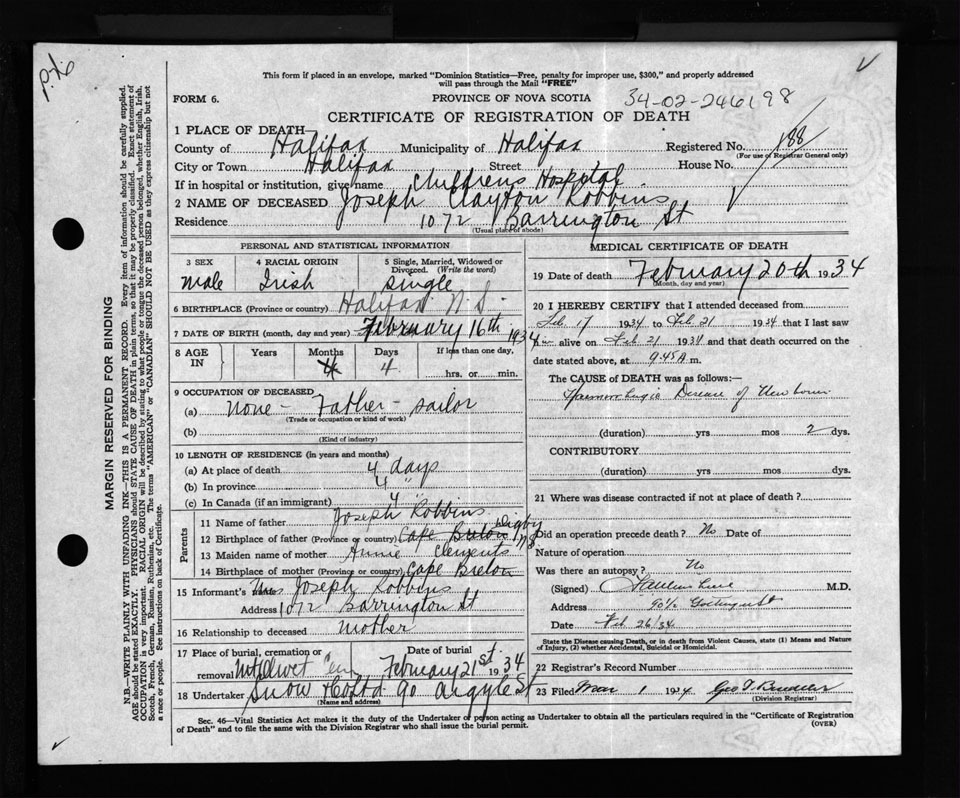 P.X.
This form if placed in an envelope, marked "Dominion Statistics—Free, penalty for improper use, $300," and properly addressed
will pass through the Mail "FREE"
FORM 6.
PROVINCE OF NOVA SCOTIA
34-02-246198
CERTIFICATE OF REGISTRATION OF DEATH
1 PLACE OF DEATH—
County of Halifax Municipality of Halifax Registered No. 188
(For use of Registrar General only)
City or Town Halifax Street House No.
If in hospital or institution, give name Childrens Hospital
2 NAME OF DECEASED Joseph Clayton Robbins
Residence 1072 Barrington St
(Usual place of abode)
PERSONAL AND STATISTICAL INFORMATION
3 SEX
male
4 RACIAL ORIGIN
Irish
5 Single, Married, Widowed or
Divorced. (Write the word)
single
6 BIRTHPLACE (Province or country) Halifax N.S.
7 DATE OF BIRTH (month, day and year) February 16th 1934
8 AGE
IN
Years
Months
4
Days
4
If less than one day,
hrs. or min.
9 OCCUPATION OF DECEASED
(a) None - Father - sailor
(Trade or occupation or kind of work)
(b)
(Kind of industry)
10 LENGTH OF RESIDENCE (in years and months)
(a) At place of death 4 days
(b) In province 4 "
(c) In Canada (if an immigrant) 4 "
Parents
11 Name of father Joseph Robbins
12 Birthplace of father (Province or country) Cape Breton Digby N.S
13 Maiden name of mother Annie Clements
14 Birthplace of mother (Province or country) Cape Breton
15 Informant's Mrs Joseph Robbins
Address 1072 Barrington St
16 Relationship to deceased mother
17 Place of burial, cremation or
removal Mt Olivet Cem
Date of burial
February 21st 1934
18 Undertaker Snow Co Ltd 90 Argyle St
(Name and address)
MEDICAL CERTIFICATE OF DEATH
19 Date of death February 20th 1934
(Month, day and year)
20 I HEREBY CERTIFY that I attended deceased from
Feb. 17 1934 to Feb 21 1934 that I last saw
him alive on Feb 21 1934 and that death occurred on the
date stated above, at 9.45 A m.
The CAUSE OF DEATH was as follows:—
Haemorrhagic Disease of New born
(duration) yrs mos 2 dys.
CONTRIBUTORY
(duration) yrs mos dys.
21 Where was disease contracted if not at place of death?
Did an operation precede death? No Date of
Nature of operation
Was there an autopsy? No
(Signed) M.D.
Address 90½ Gottingen St
Date Feb 26/34
State the Disease causing Death, or in death from Violent Causes, state (1) Means and Nature
of Injury, (2) whether Accidental, Suicidal or Homicidal.
22 Registrar's Record Number
23 Filed Mar 1 1934 Geo
(Division Registrar)
Sec. 46—Vital Statistics Act makes it the duty of the Undertaker or person acting as Undertaker to obtain all the particulars required in the "Certificate of Registration
of Death" and to file the same with the Division Registrar who shall issue the burial permit.
(OVER)
MARGIN RESERVED FOR BINDING
N.B.—WRITE PLAINLY WITH UNFADING INK—THIS IS A PERMANENT RECORD. Every item of information should be carefully supplied.
AGE should be stated EXACTLY. PHYSICIANS should STATE CAUSE OF DEATH in plain terms, so that it may be properly classified. Exact statement of
OCCUPATION is very important. RACIAL ORIGIN will be described by stating to what people or tongue the deceased person belonged, whether English, Irish,
Scotch, French, German, Russian, Ruthenian, etc. The terms "AMERICAN" or "CANADIAN" SHOULD NOT BE USED as they express citizenship but not
a race or people. See instructions on back of Certificate.